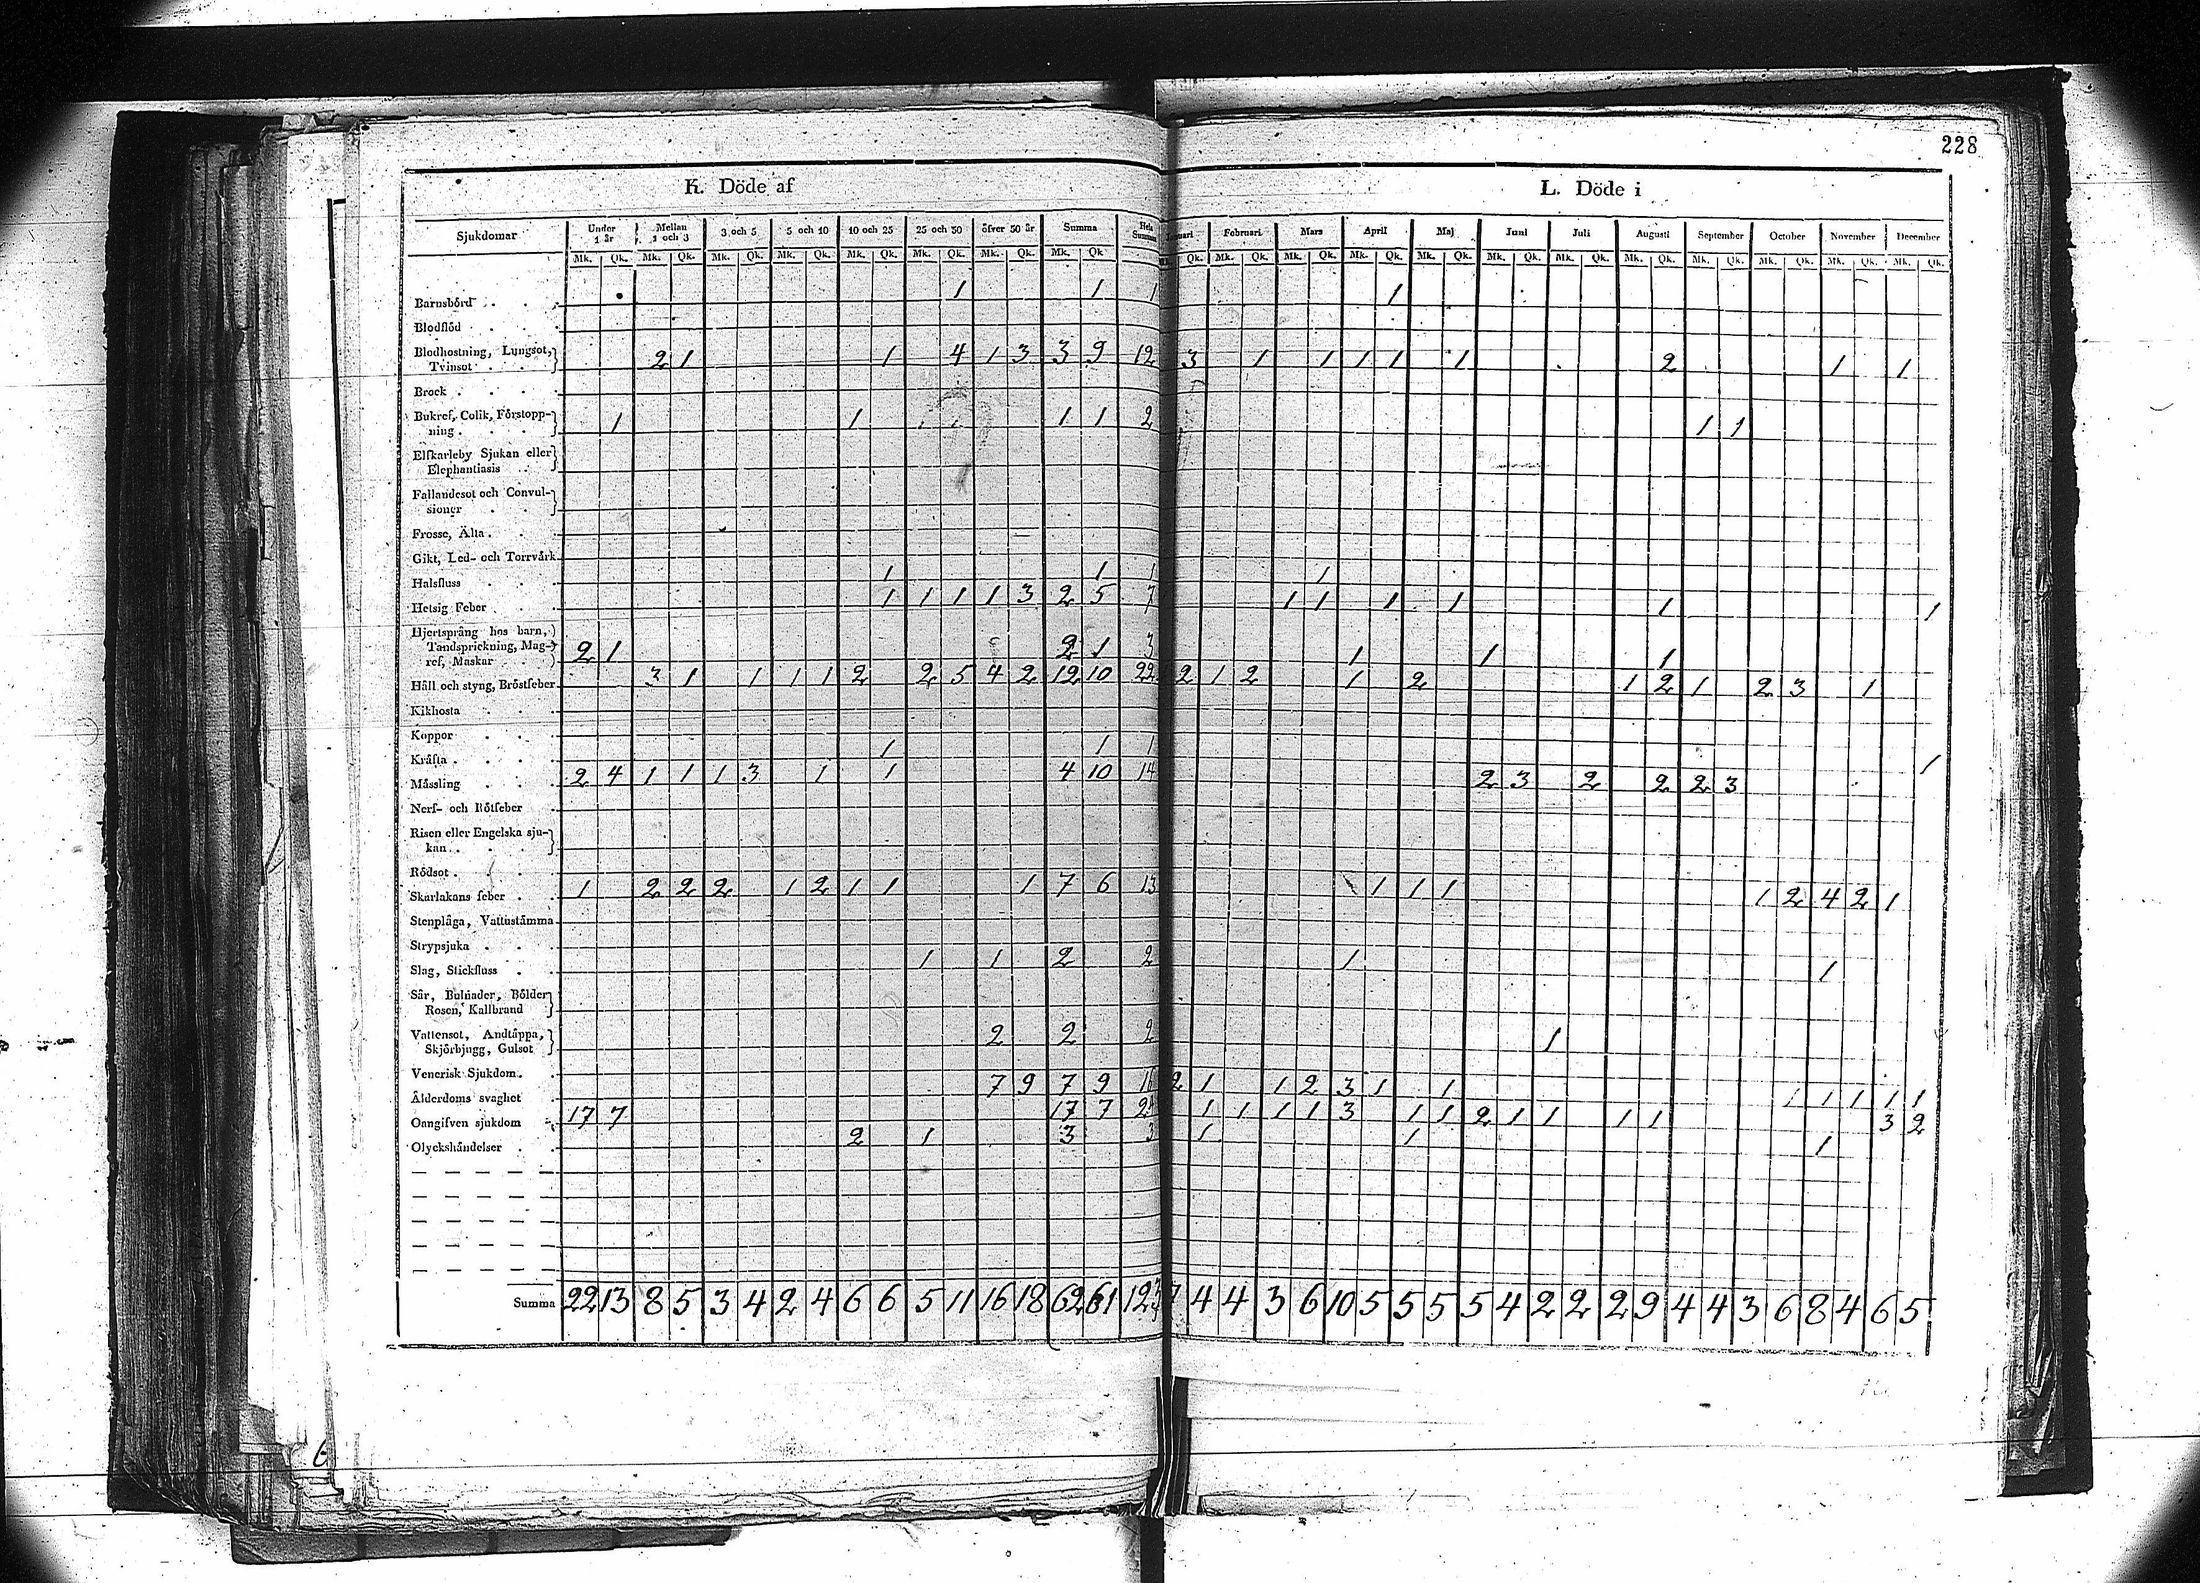 228
K. Döde af L. Döde i
Sjukdomar Under 1 år Mellan 1 och 3 3 och 5 5 och 10 10 och 25 25 och 50 öfver 50 år Summa Hela Summan Januari Februari Mars April Maj Juni Juli Augusti September October November December
Mk. Qk. Mk. Qk. Mk. Qk. Mk. Qk. Mk. Qk. Mk. Qk. Mk. Qk. Mk. Qk Qk. Mk. Qk. Mk. Qk. Mk. Qk. Mk. Qk. Mk. Qk. Mk. Qk. Mk. Qk. Mk. Qk. Mk. Qk. Mk. Qk. Mk. Qk.
Barnsbörd 1 1 1 1
Blodflöd
Blodhostning, Lungsot,
Tvinsot 2 1 1 4 1 3 3 9 12 3 1 1 1 1 1 2 1 1
Brock
Bukref, Colik, Förstopp-
ning 1 1 1 1 2 1 1
Elfkarleby Sjukan eller
Elephantiasis
Fallandesot och Convul-
sioner
Frosse, Älta
Gikt, Led- och Torrvärk
Halsfluss 1 1 1 1
Hetsig Feber 1 1 1 1 3 2 5 7 1 1 1 1 1 1
Hjertsprång hos barn,
Tandsprickning, Mag-
ref, Maskar 2 1 2 1 3 1 1 1
Håll och styng, Bröstfeber 3 1 1 1 1 2 2 5 4 2 12 10 22 2 1 2 1 2 1 2 1 2 3 1
Kikhosta
Koppor
Kräfta 1 1 1 1
Mässling 2 4 1 1 1 3 1 1 4 10 14 2 3 2 2 2 3
Nerf- och Rötfeber
Risen eller Engelska sju-
kan
Rödsot
Skarlakans feber 1 2 2 2 1 2 1 1 1 7 6 13 1 1 1 1 2 4 2 1
Stenplåga, Vattustämma
Strypsjuka
Slag, Stickfluss 1 1 2 2 1 1
Sår, Bulnader, Bölder
Rosen, Kallbrand
Vattensot, Andtäppa,
Skjörbjugg, Gulsot 2 2 2 1
Venerisk Sjukdom
Ålderdoms svaghet 7 9 7 9 16 2 1 1 2 3 1 1 1 1 1 1 1
Oangifven sjukdom 17 7 17 7 1 1 1 1 3 1 1 2 1 1 1 1 3 2
Olyckshändelser 2 1 3 3 1 1 1
Summa 22 13 8 5 3 4 2 4 6 6 5 11 16 18 62 61 123 7 4 4 3 6 10 5 5 5 5 4 2 2 2 9 4 4 3 6 8 4 6 5